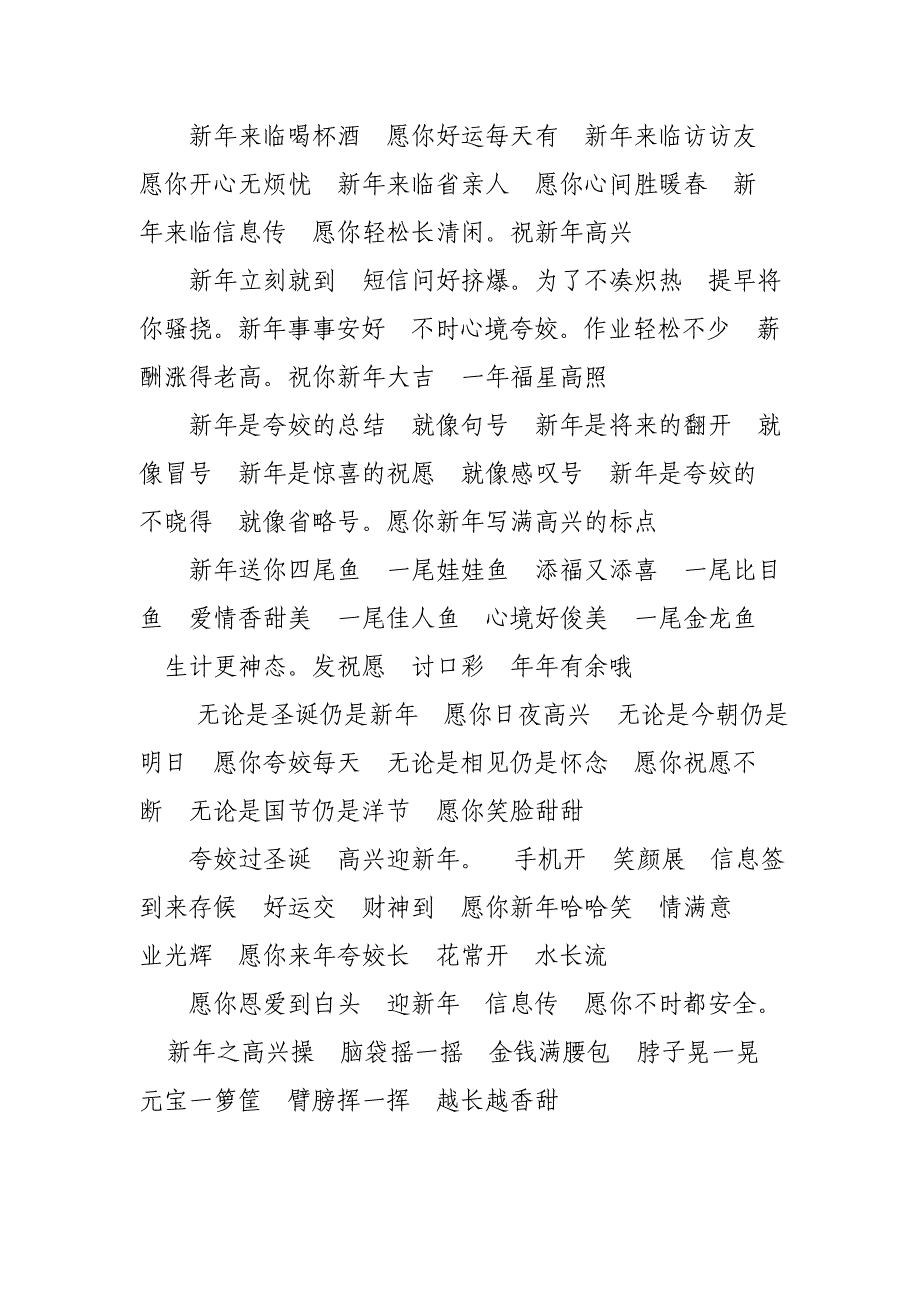 新年来临喝杯酒　愿你好运每天有　新年来临访访友
愿你开心无烦忧　新年来临省亲人　愿你心间胜暖春　新
年来临信息传　愿你轻松长清闲。祝新年高兴
新年立刻就到　短信问好挤爆。为了不凑炽热　提早将
你骚挠。新年事事安好　不时心境夸姣。作业轻松不少　薪
酬涨得老高。祝你新年大吉　一年福星高照
新年是夸姣的总结　就像句号　新年是将来的翻开　就
像冒号　新年是惊喜的祝愿　就像感叹号　新年是夸姣的
不晓得　就像省略号。愿你新年写满高兴的标点
新年送你四尾鱼　一尾娃娃鱼　添福又添喜　一尾比目
鱼　爱情香甜美　一尾佳人鱼　心境好俊美　一尾金龙鱼
生计更神态。发祝愿　讨口彩　年年有余哦
无论是圣诞仍是新年　愿你日夜高兴　无论是今朝仍是
明日　愿你夸姣每天　无论是相见仍是怀念　愿你祝愿不
断　无论是国节仍是洋节　愿你笑脸甜甜
夸姣过圣诞　高兴迎新年。　手机开　笑颜展　信息签
到来存候　好运交　财神到　愿你新年哈哈笑　情满意
业光辉　愿你来年夸姣长　花常开　水长流
愿你恩爱到白头　迎新年　信息传　愿你不时都安全。
新年之高兴操　脑袋摇一摇　金钱满腰包　脖子晃一晃
元宝一箩筐　臂膀挥一挥　越长越香甜